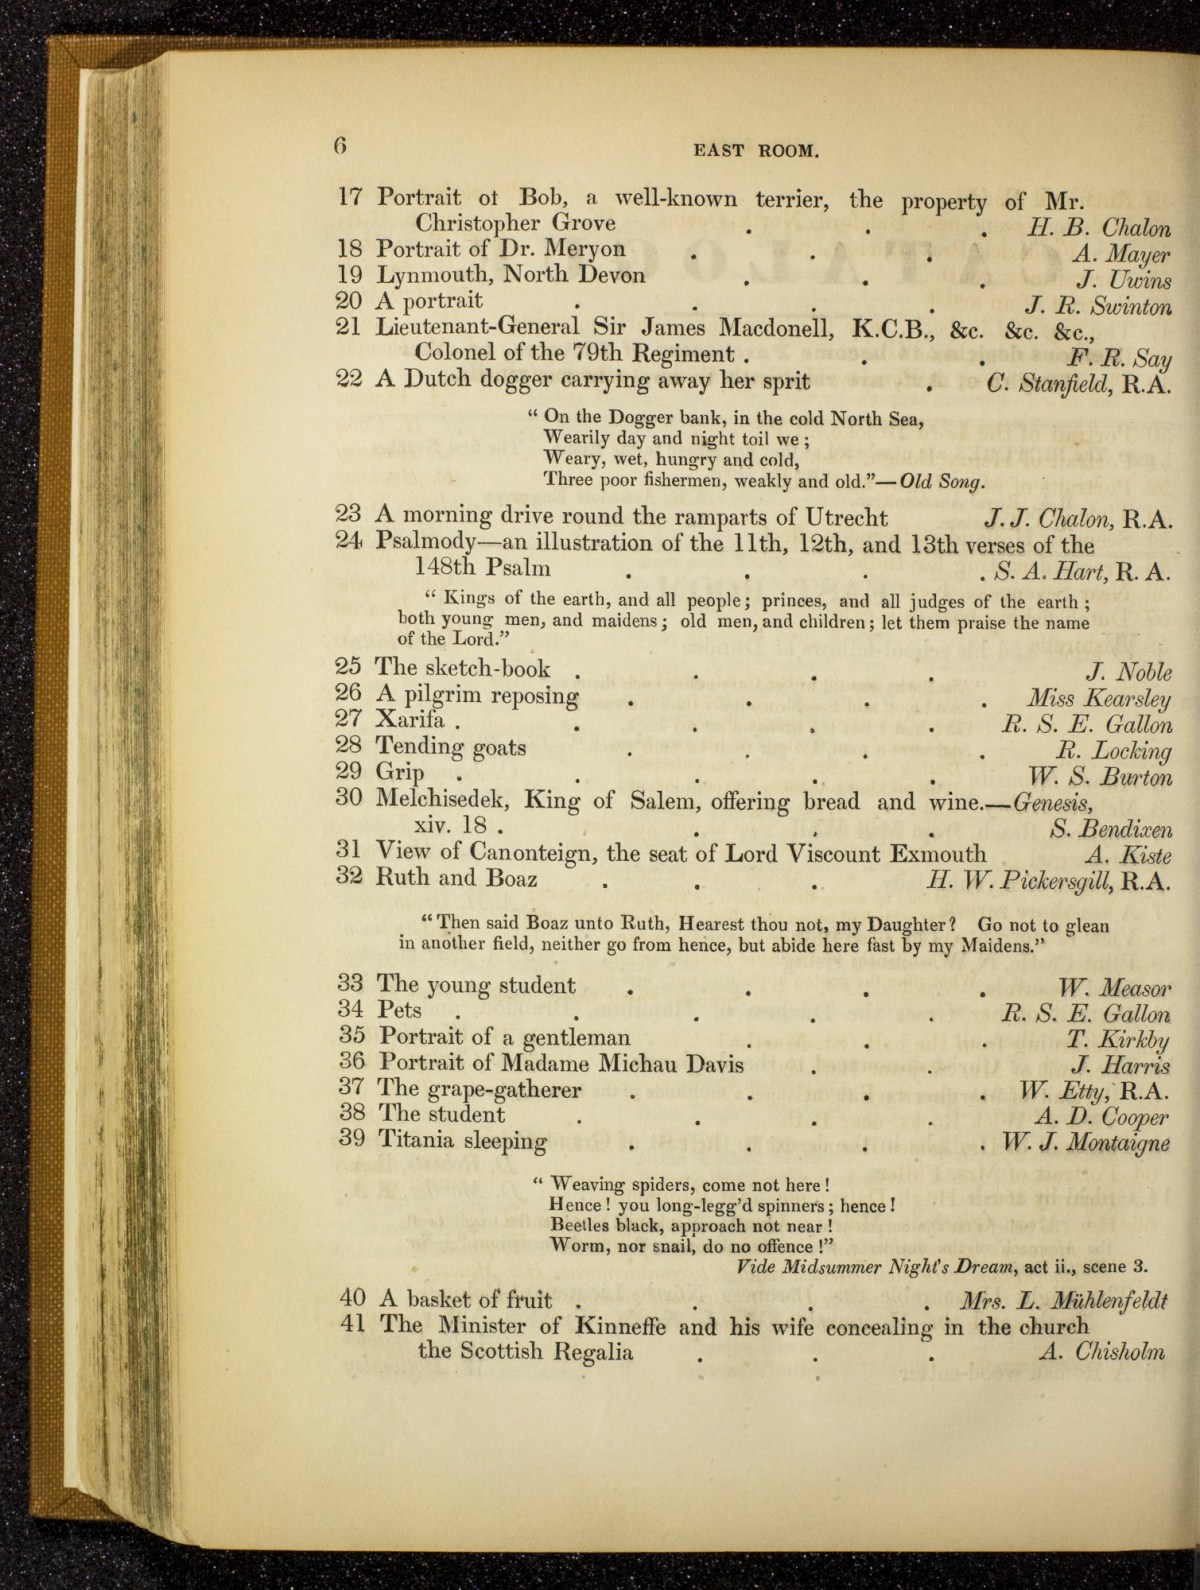 6 EAST ROOM.
17 Portrait of Bob, a well-known terrier, the property of Mr.
Christopher Grove . . . H. B. Chalon
18 Portrait of Dr. Meryon . . . A. Mayer
19 Lynmouth, North Devon . . . J. Uwins
20 A portrait . . . . J. R. Swinton
21 Lieutenant-General Sir James Macdonell, K.C.B., &c. &c. &c.,
Colonel of the 79th Regiment . . . F. R. Say
22 A Dutch dogger carrying away her sprit . C. Stanfield, R.A.
“ On the Dogger bank, in the cold North Sea,
Wearily day and night toil we ;
Weary, wet, hungry and cold,
Three poor fishermen, weakly and old.”—Old Song.
23 A morning drive round the ramparts of Utrecht J. J. Chalon, R.A.
24 Psalmody—an illustration of the 11th, 12th, and 13th verses of the
148th Psalm . . . . S. A. Hart, R. A.
“ Kings of the earth, and all people ; princes, and all judges of the earth ;
both young men, and maidens ; old men, and children ; let them praise the name
of the Lord.”
25 The sketch-book . . . . J. Noble
26 A pilgrim reposing . . . . Miss Kearsley
27 Xarifa . . . . . R. S. E. Gallon
28 Tending goats . . . . R. Locking
29 Grip . . . . . W. S. Burton
30 Melchisedek, King of Salem, offering bread and wine.—Genesis,
xiv. 18 . . . . S. Bendixen
31 View of Canonteign, the seat of Lord Viscount Exmouth A. Kiste
32 Ruth and Boaz . . . H. W. Pickersgill, R.A.
“ Then said Boaz unto Ruth, Hearest thou not, my Daughter ? Go not to glean
in another field, neither go from hence, but abide here fast by my Maidens.”
33 The young student . . . . W. Measor
34 Pets . . . . . R. S. E. Gallon
35 Portrait of a gentleman . . . T. Kirkby
36 Portrait of Madame Michau Davis . . J. Harris
37 The grape-gatherer . . . . W. Etty, R.A.
38 The student . . . . A. D. Cooper
39 Titania sleeping . . . . W. J. Montaigne
“ Weaving spiders, come not here !
Hence ! you long-legg’d spinners ; hence !
Beetles black, approach not near !
Worm, nor snail, do no offence !”
Vide Midsummer Night’s Dream, act ii., scene 3.
40 A basket of fruit . . . . Mrs. L. Mühlenfeldt
41 The Minister of Kinneffe and his wife concealing in the church
the Scottish Regalia . . . A. Chisholm